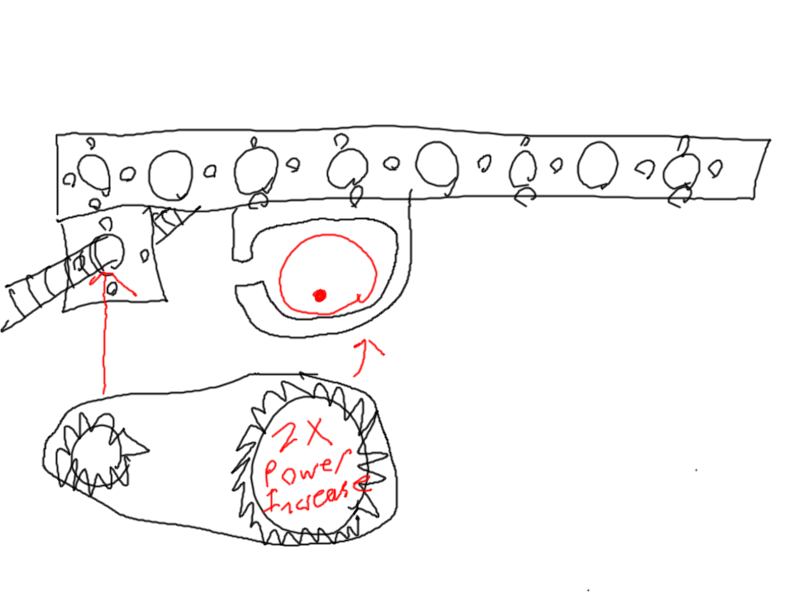 2X
Power
Increase